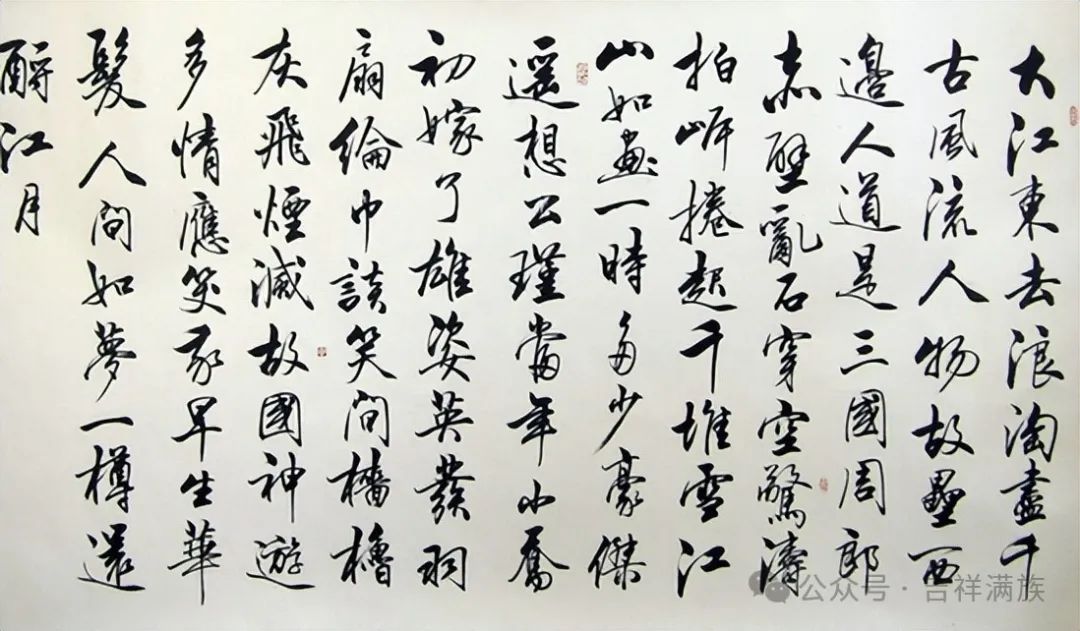 大江東去浪淘盡千
古風流人物故壘西
邊人道是三國周郎
赤壁亂石穿空驚濤
拍岸捲起千堆雪江
山如畫一時多少豪傑
遥想公瑾當年小喬
初嫁了雄姿英發羽
扇綸巾談笑間檣櫓
灰飛煙滅故國神遊
多情應笑我早生華
髮人間如夢一樽還
酹江月
公众号 · 吉祥满族